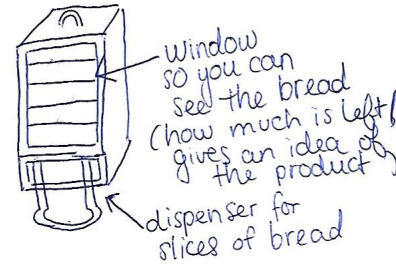 window
so you can
see the bread
(how much is left/
gives an idea of
the product)
dispenser for
slices of bread